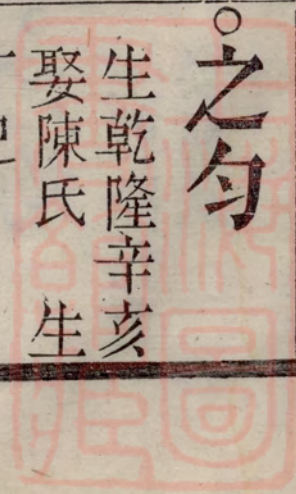 ○之匀
生乾隆辛亥
娶陳氏　生